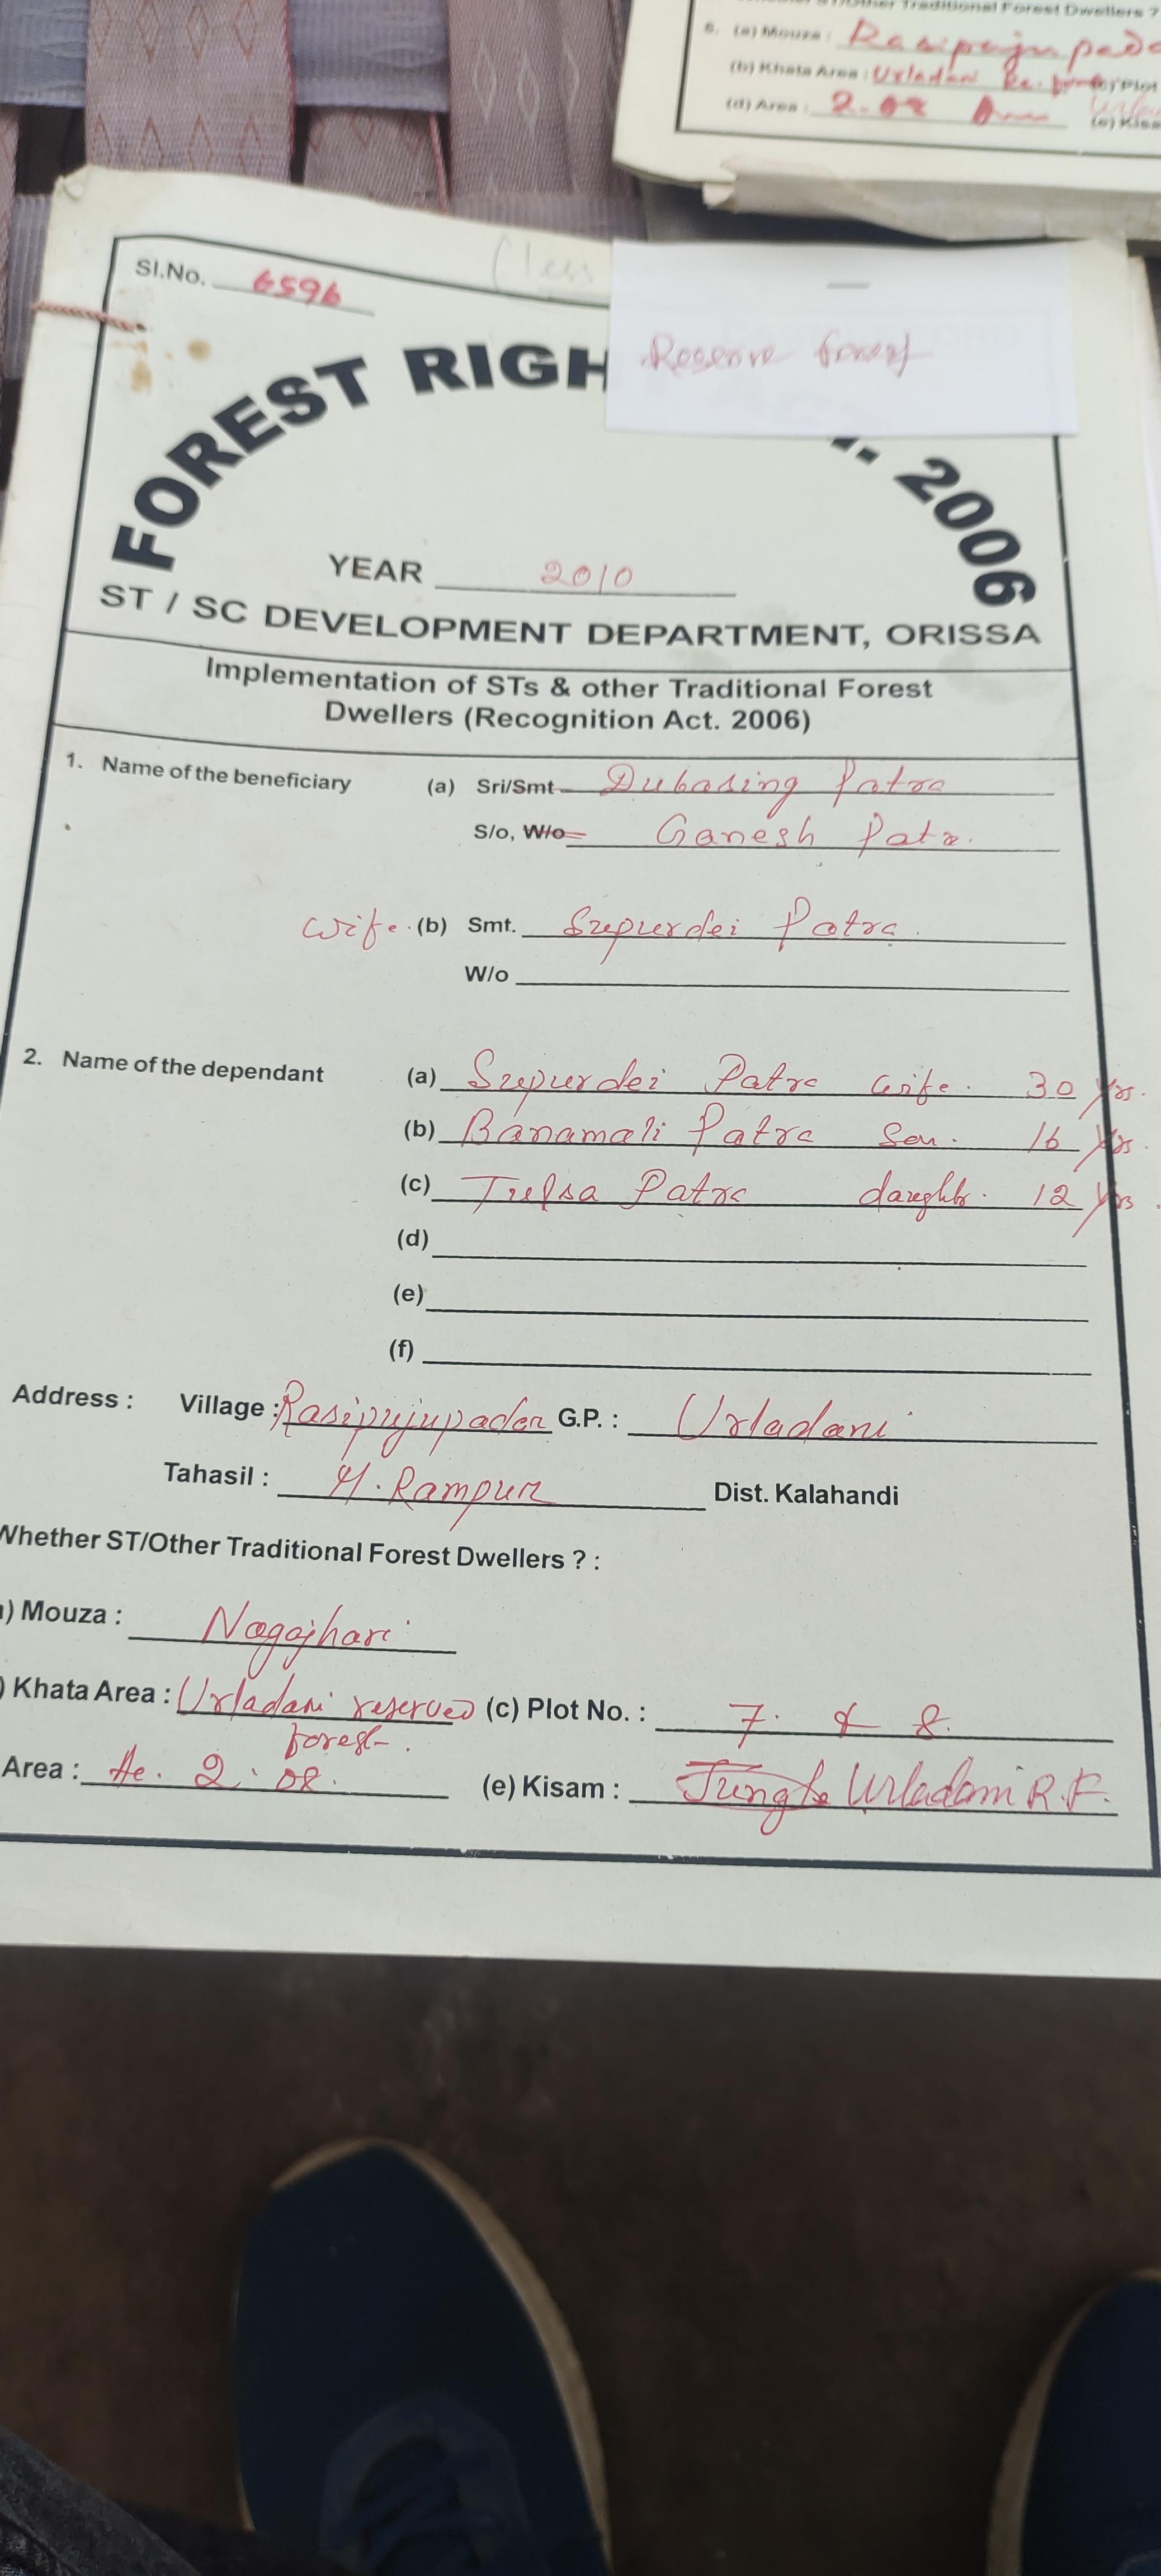 Traditional Forest Dwellers ?
(a) Mouza :
(b) Khata Area : Urladani Re. forest Plot
(d) Area : 2.08
Sl.No. 6596
Reserve forest
FOREST RIGH 2006
YEAR 2010
ST / SC DEVELOPMENT DEPARTMENT, ORISSA
Implementation of STs & other Traditional Forest
Dwellers (Recognition Act. 2006)
1. Name of the beneficiary (a) Sri/Smt Dubasing Patra
S/o, W/o Ganesh Patra.
wife. (b) Smt. Srepurdei Patra.
W/o
2. Name of the dependant (a) Srepurdei Patra wife. 30 yrs.
(b) Banamali Patra Son. 16 yrs.
(c) Tulsa Patra daughter. 12 yrs.
(d)
(e)
(f)
Address : Village : Rasipujupadar G.P. : Urladani
Tahasil : M. Rampur Dist. Kalahandi
Whether ST/Other Traditional Forest Dwellers ? :
) Mouza : Nagajhari
) Khata Area : Urladani reserved (c) Plot No. : 7. & 8.
forest.
Area : Ac. 2.08. (e) Kisam : Jungle Urladani R.F.